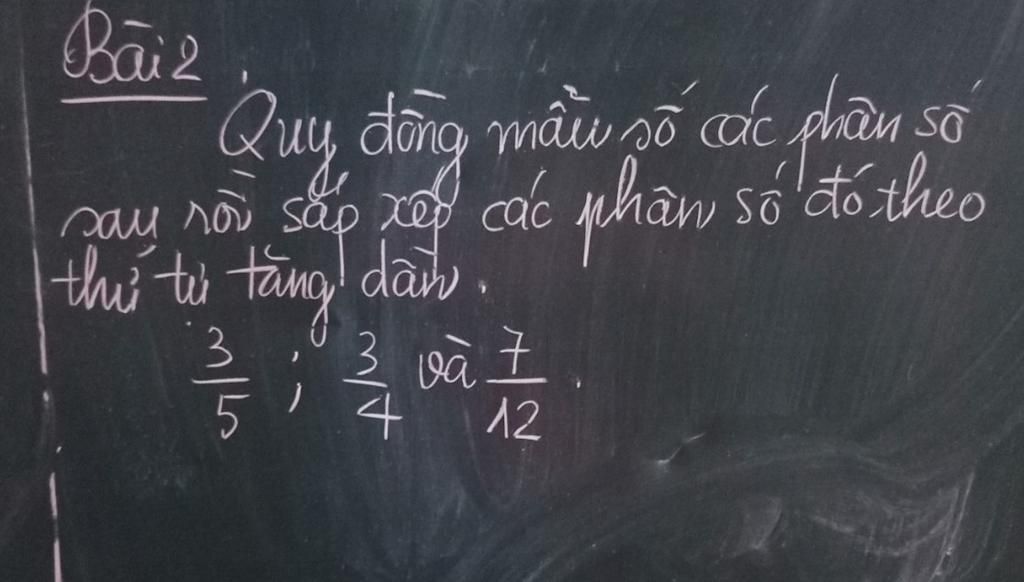 Bài 2.
Quy đồng mẫu số các phân số
sau rồi sắp xếp các phân số đó theo
thứ tự tăng dần.
3/5 ; 3/4 và 7/12.